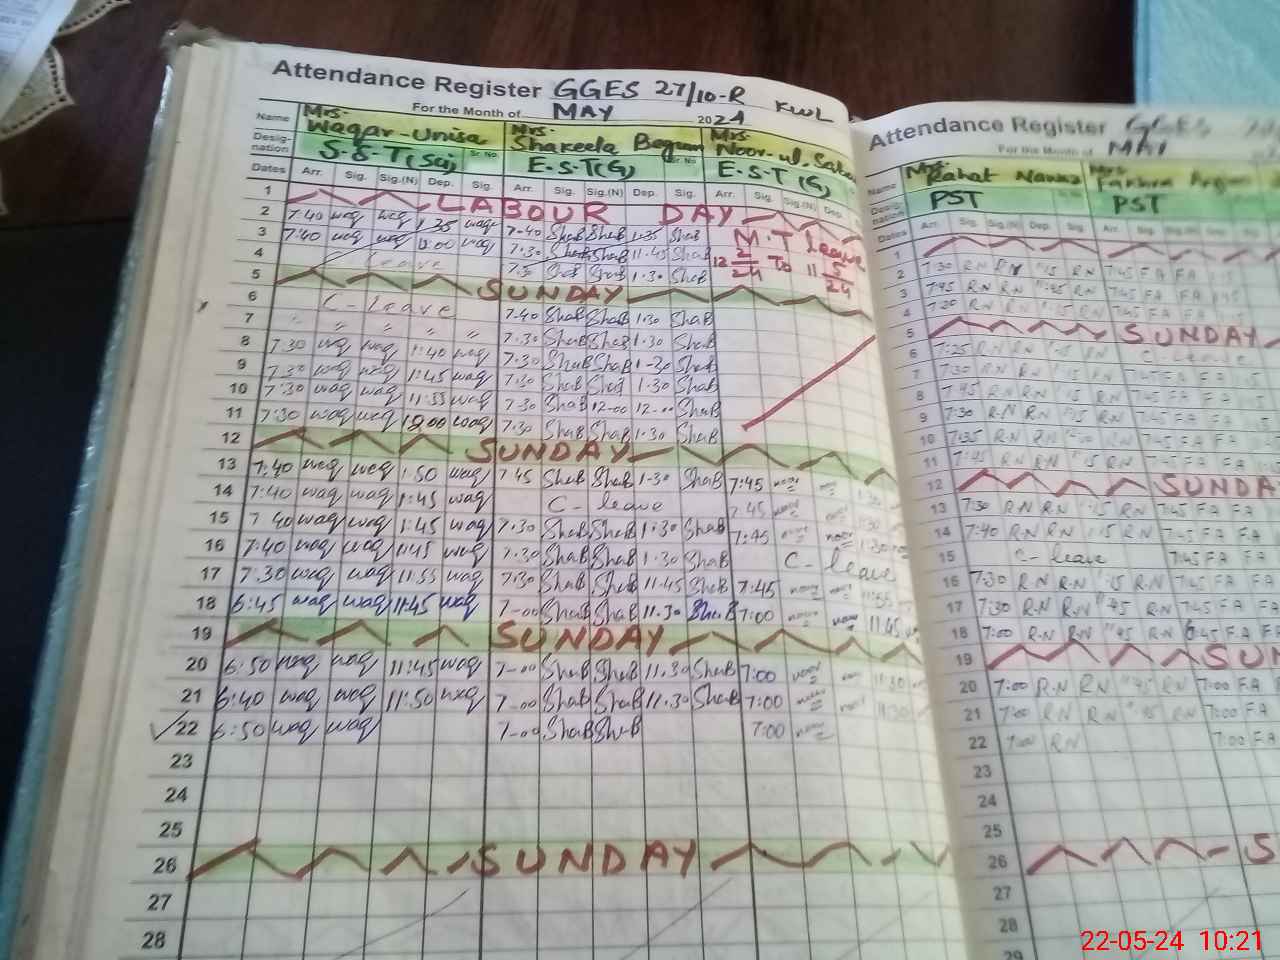 Attendance Register GGES 27/10-R KWL
For the Month of MAY 2024
Name Mrs. Waqar-Unisa Mrs. Shakeela Begum Mrs.
Designation S.S.T (Sci) Sr. No. E.S.T (G) Sr. No. E.S.T (G)
Dates Arr. Sig. Sig.(N) Dep. Sig. Arr. Sig. Sig.(N) Dep. Sig. Arr. Sig. Sig.(N) Dep.
1 LABOUR DAY
2 7:40 waq waq 1:35 waq 7-40 ShaB ShaB 1-35 ShaB M.T leave
3 7:40 waq waq 7.30 ShaB ShaB 11.45 ShaB 12 2/24 To 11 5/24
4 Leave 7.30 ShaB ShaB 1.30 ShaB
5 SUNDAY
6 C-Leave 7.40 ShaB ShaB 1.30 ShaB
7 " " " " " 7.30 ShaB ShaB 1.30 ShaB
8 7:30 waq waq 1:40 waq 7.30 ShaB ShaB 1-30 ShaB
9 7:30 waq waq 1:45 waq 7.30 ShaB ShaB 1-30 ShaB
10 7:30 waq waq 11:55 waq 7.30 ShaB 12-00 12-00 ShaB
11 7:30 waq waq 12:00 waq 7.30 ShaB ShaB 1-30 ShaB
12 SUNDAY
13 7:40 waq waq 1:50 waq 7 45 ShaB ShaB 1-30 ShaB 7:45 noor
14 7:40 waq waq 1:45 waq C-leave 7 45 noor
15 7 40 waq waq 1:45 waq 7.30 ShaB ShaB 1.30 ShaB 7:45 noor noor 1:30
16 7:40 waq waq 1:45 waq 7.30 ShaB ShaB 1.30 ShaB C-leave
17 7:30 waq waq 11:55 waq 7.30 ShaB ShaB 11.45 ShaB 7:45 noor noor 11:55
18 6:45 waq waq 11:45 waq 7-00 ShaB ShaB 11.30 ShaB 7:00 noor noor 11:45
19 SUNDAY
20 6:50 waq waq 11:45 waq 7-00 ShaB ShaB 11.30 ShaB 7:00 noor noor 11:30
21 6:40 waq waq 11:50 waq 7-00 ShaB ShaB 11.30 ShaB 7:00 noor noor 11:30
22 6:50 waq waq 7-00 ShaB ShaB 7:00 noor
23
24
25
26 SUNDAY
27
28
Attendance Register GGES
For the Month of MAY
Name Mrs. Rahat Mrs.
Designation PST PST
Dates Arr. Sig. Sig.(N) Dep. Sig. Arr. Sig.
1
2 7:30 R.N R.N 1:15 R.N 7:45 F.A F.A
3 7:45 R.N R.N 11:45 R.N 7:45 F.A F.A
4 7:30 R.N R.N R.N 7:45 F.A F.A
5 SUNDAY
6 7:25 R.N R.N R.N C-leave
7 7:30 R.N R.N 1:15 R.N 7:45 F.A F.A
8 7:45 R.N R.N 1:15 R.N 7:45 F.A F.A
9 7:30 R.N R.N 1:15 R.N 7:45 F.A F.A
10 7:35 R.N R.N R.N 7:45 F.A F.A
11 7:45 R.N R.N 1:15 R.N 7:45 F.A F.A
12 SUNDA
13 7:30 R.N R.N 1:15 R.N 7:45 F.A F.A
14 7:40 R.N R.N 1:15 R.N 7:45 F.A F.A
15 C-leave 7:45 F.A F.A
16 7:30 R.N R.N 1:15 R.N 7:45 F.A F.A
17 7:30 R.N R.N 11:45 R.N 7:45 F.A F.A
18 7:00 R.N R.N 11:45 R.N 6:45 F.A F.A
19 SUN
20 7:00 R.N R.N 11:45 R.N 7:00 F.A
21 7:00 R.N R.N 11:45 R.N 7:00 F.A
22 7:00 R.N 7:00 F.A
23
24
25
26 S
27
28
29
22-05-24 10:21